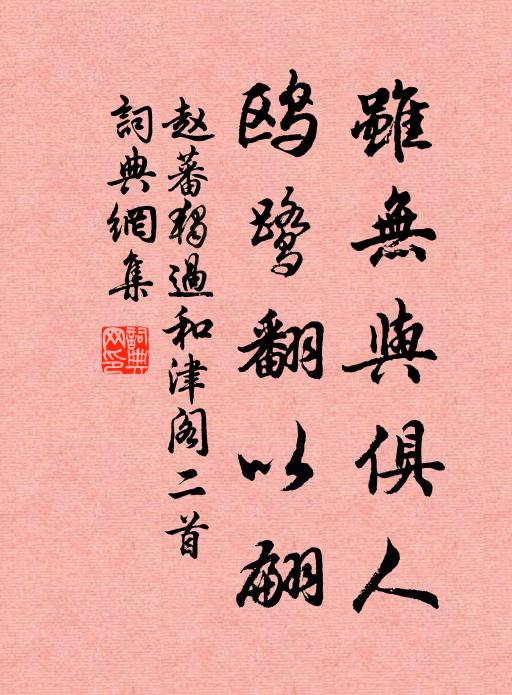 雖無與俱人
鸥鹭翻以翩
赵蕃独過和津阁二首
詞典網集
詞典网印